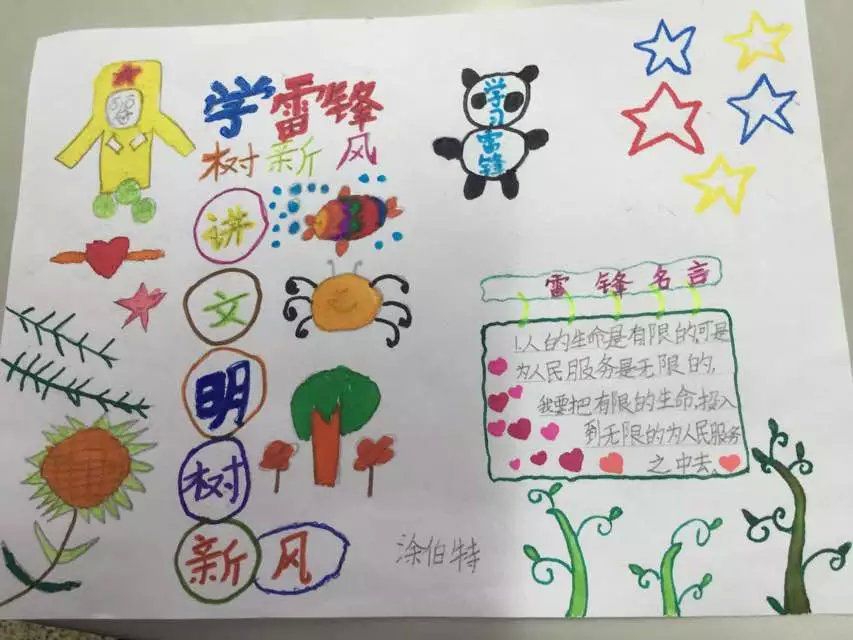 学雷锋
树新风
讲
文
明
树
新风
学习
雷锋
雷锋名言
1.人的生命是有限的,可是
为人民服务是无限的,
我要把有限的生命,投入
到无限的为人民服务
之中去。
涂伯特